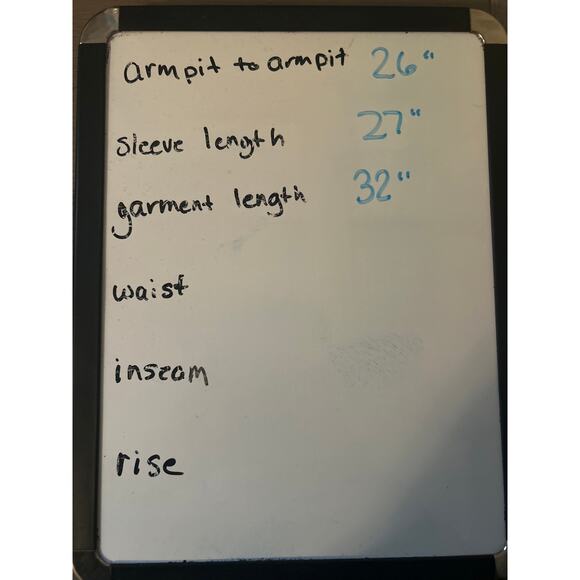 armpit to armpit 26"
sleeve length 27"
garment length 32"
waist
inseam
rise